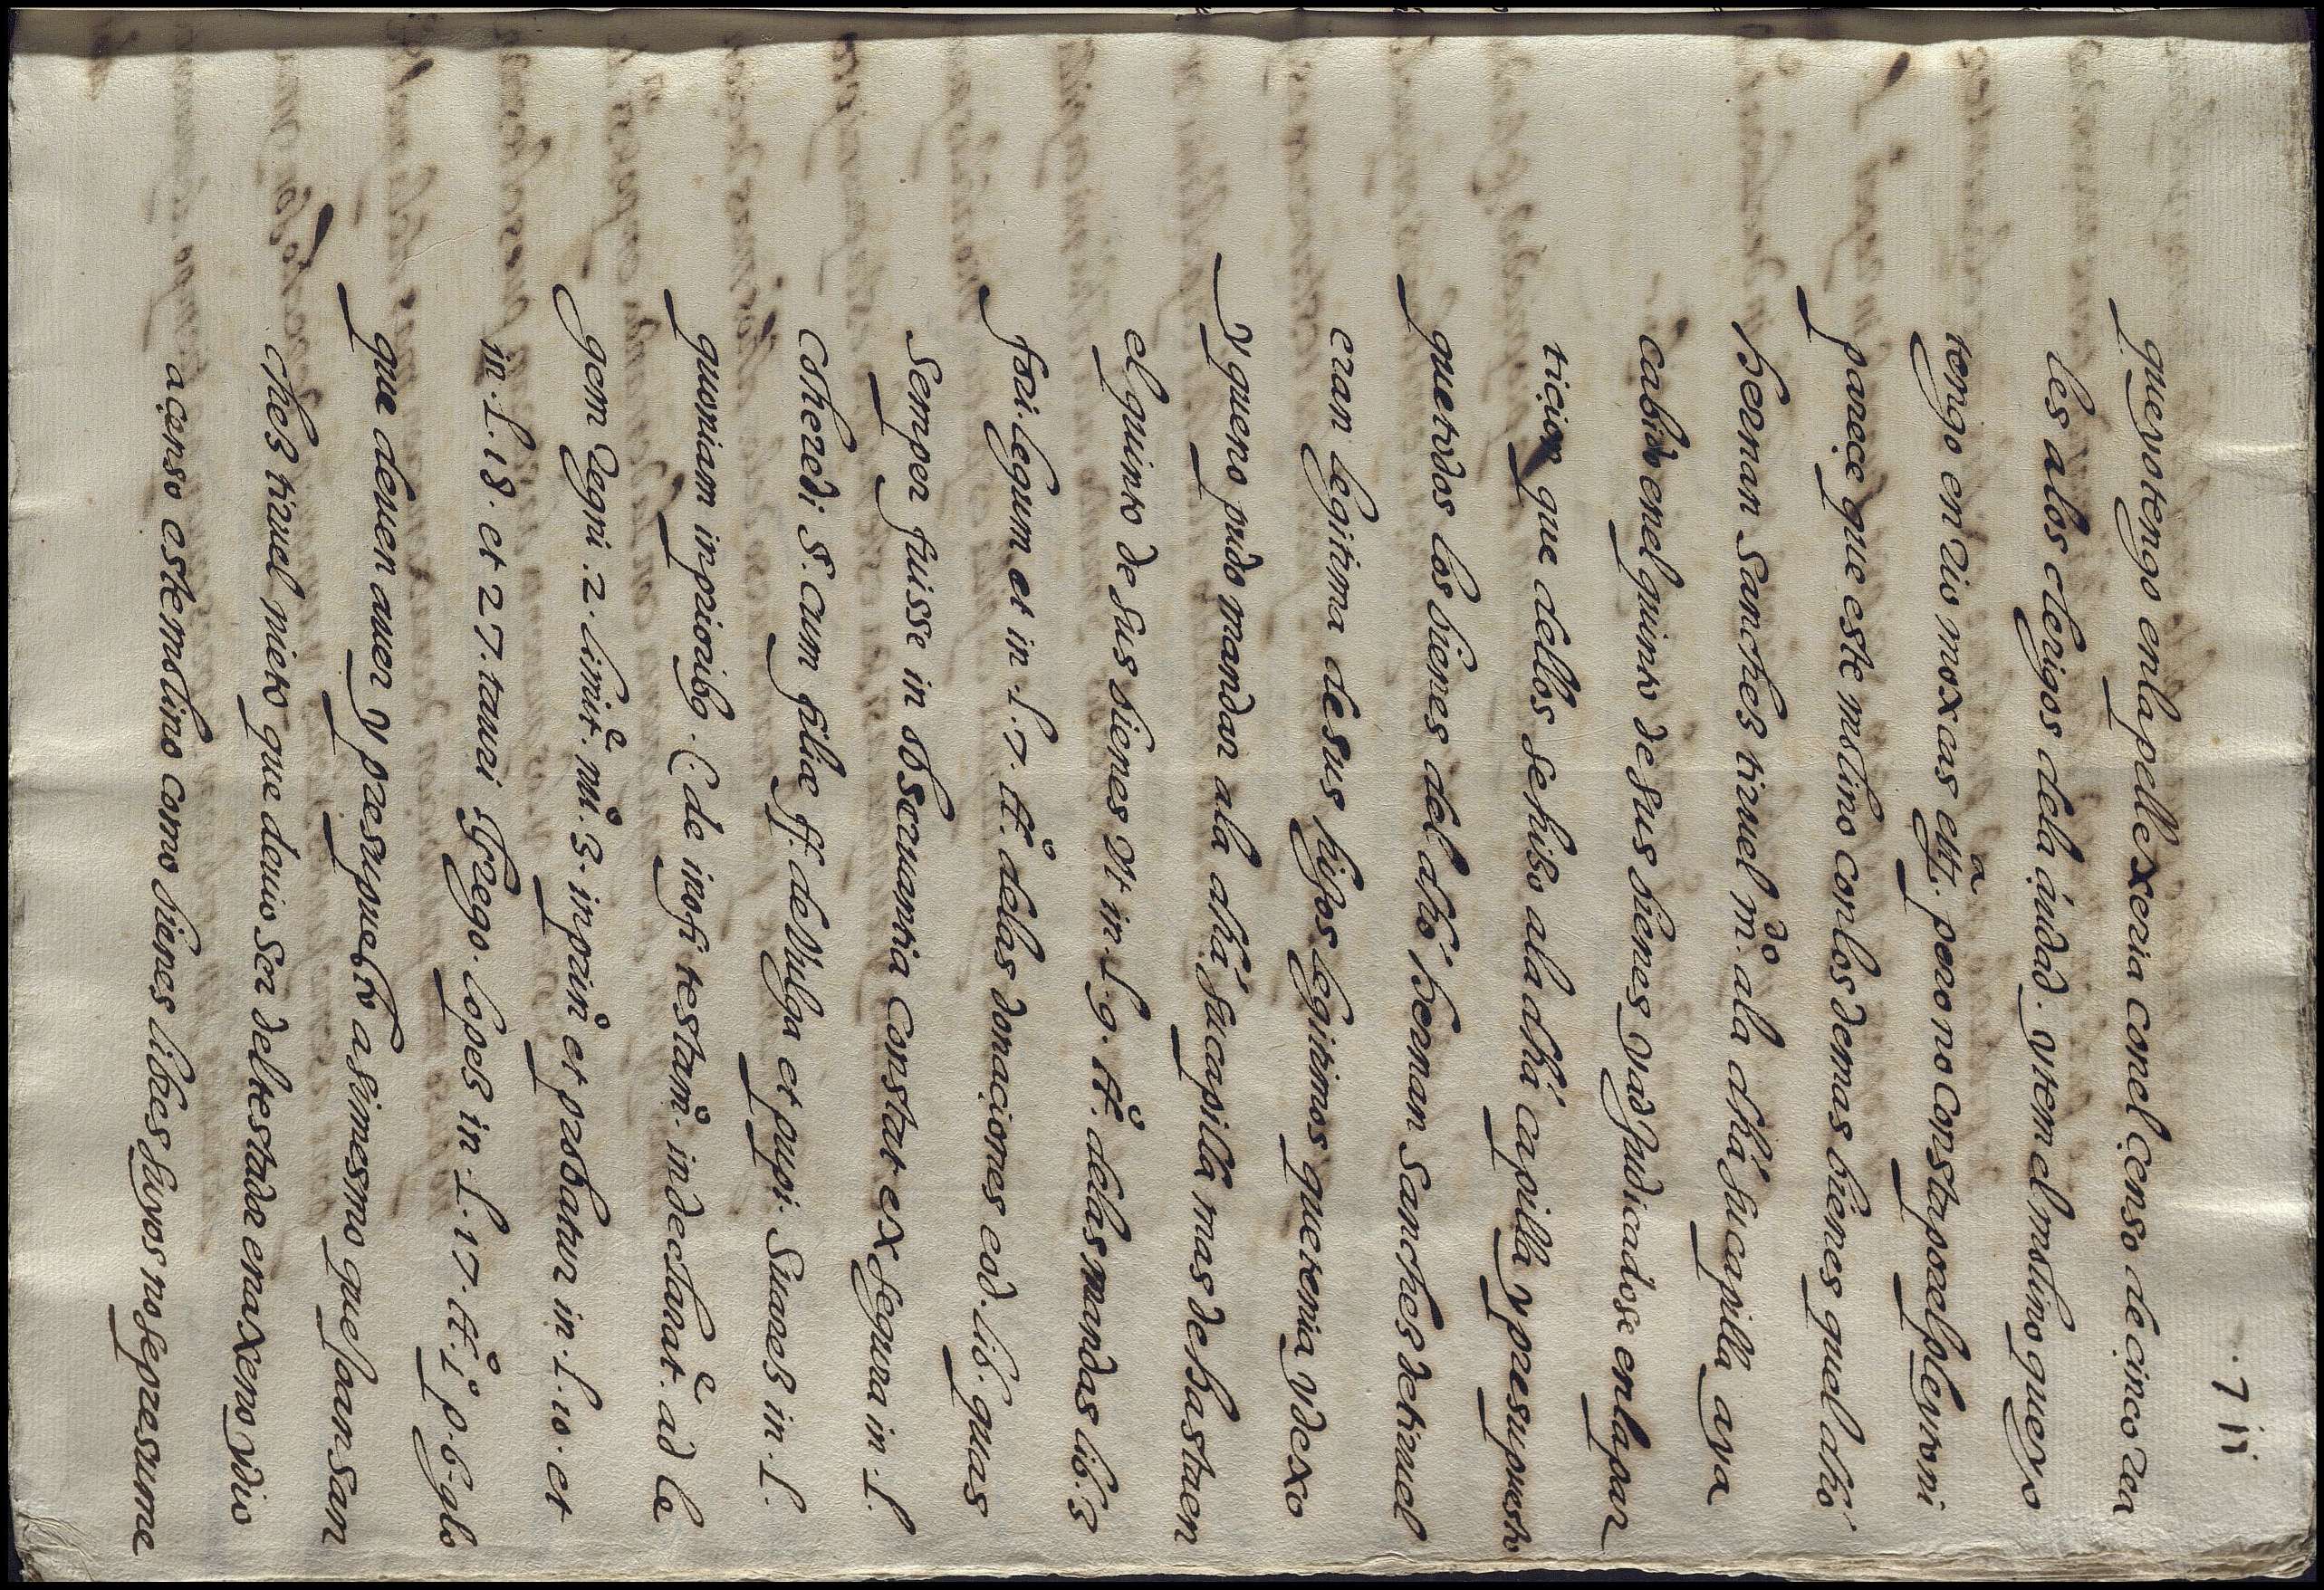 .7ii
que yo tengo en la pellexeria con el çenso de cinco rea
les a los clerigos dela ciudad. ytem el molino que yo
tengo en rio moxas etc.ª pero no consta por el pleyto ni
parece que este molino con los demas bienes quel dho
hernan sanchez tiruel m.do a la dha su capilla aya
cabido en el quinto de sus bienes y adjudicadose en la par
ticion que dellos se hizo a la dha capilla y presupuesto
que todos los bienes del dho hernan sanches de tiruel
eran legitima de sus hijos legitimos que tenia y dexo
y que no pudo mandar a la dha su capilla mas de hasta en
el quinto de sus bienes vt in. l. 9. tt.º delas mandas lib. 3
fori. legum et in. l. 7. tt.º delas donaciones eod. lib. quas
semper fuisse in obseruantia constat ex segura in. l.
coheredi §. cum filiæ ff. de vulga et pupi. Suarez in. l.
quoniam in prioribo. C. de inoffi testam.º in declarat.e ad le
gem Regni. 2. limit.e nu.º 3. in prin.º et probatur in. l. 10. et
in. l. 18. et 27. tauri &. Grego. lopez in. l. 17. tt.º i.º p. 6. glo
que deuen auer y presupuesto asimesmo quel Joan san
chez tiruel nieto que deuio ser del testador enaxeno y dio
a çenso este molino como bienes libres suyos no se presume